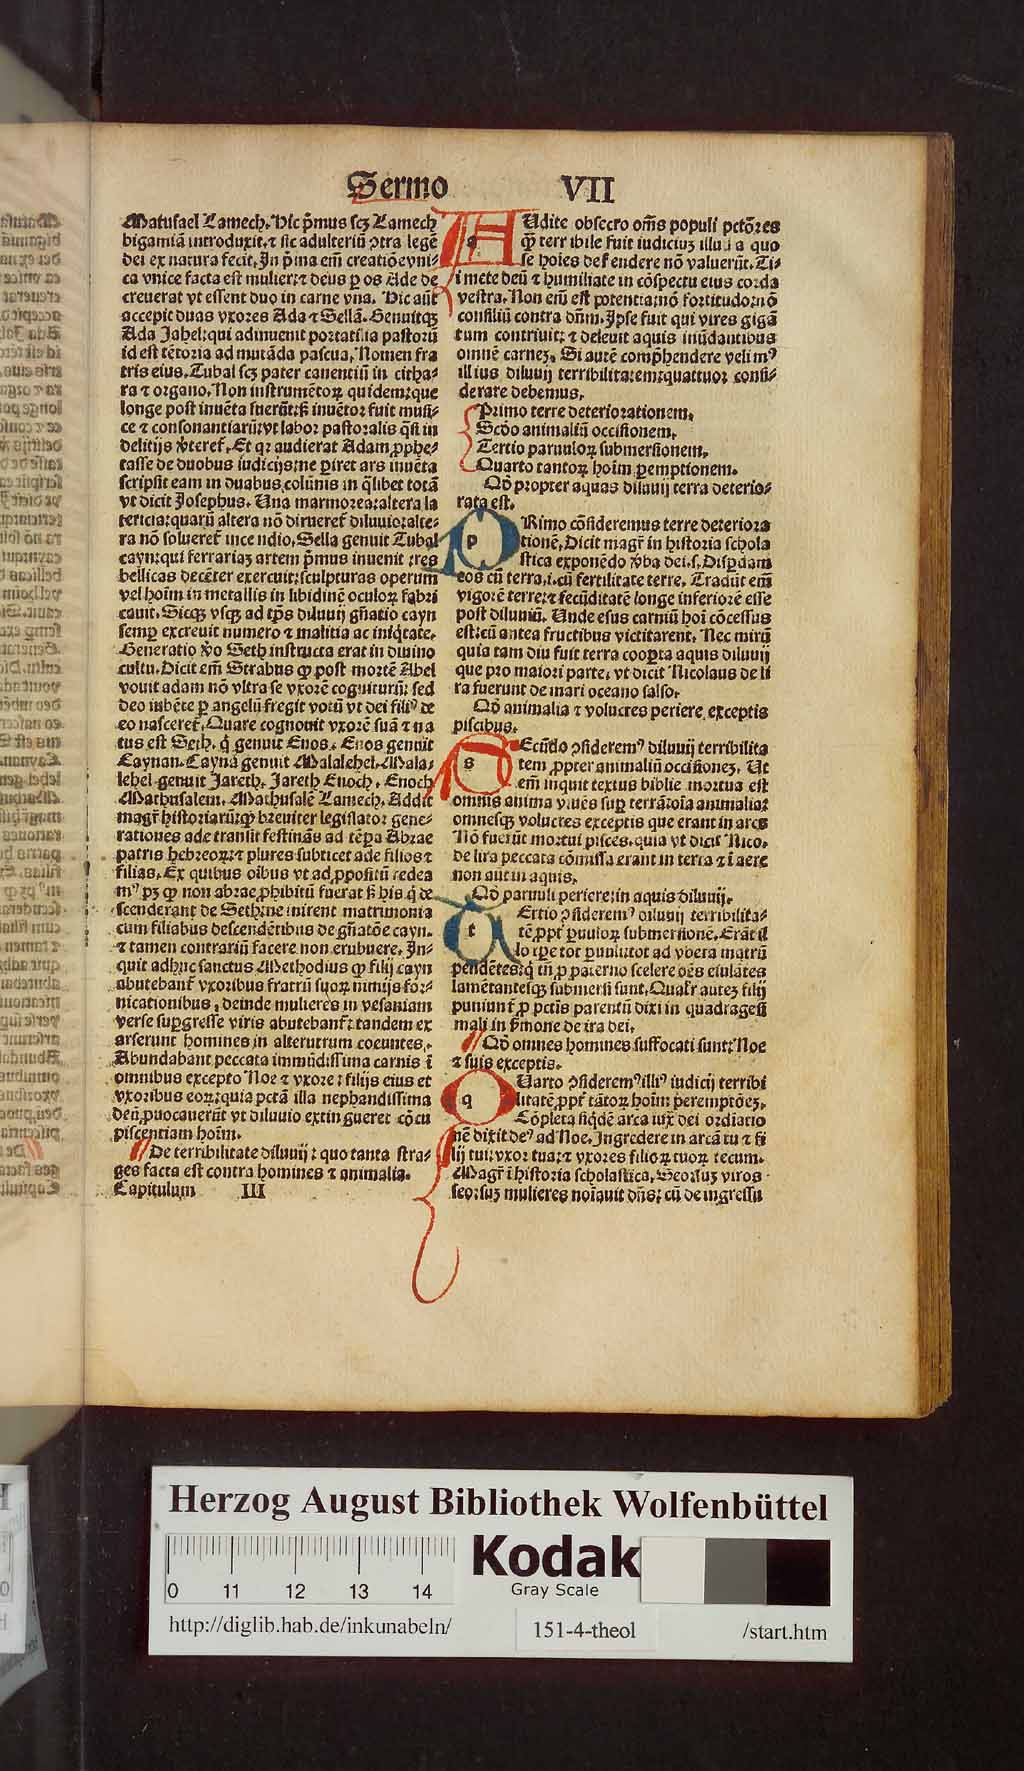 Sermo VII
Matusael Lamech. Hic p̄mus scꝫ Lamech
bigamiā introduxit. ⁊ sic adulteriū ꝯtra legē
dei ex natura fecit. In p̄ma em̄ creatiōe vni⸗
ca vnice facta est mulier: ⁊ deus ꝑ os Ade de
creuerat vt essent duo in carne vna. Hic aūt
accepit duas vxores Ada ⁊ Sellā. Genuitqꝫ
Ada Jabel: qui adinuenit portatilia pastorū
id est tētoria ad mutāda pascua. Nomen fra
tris eius. Tubal scꝫ pater canentiū in citha⸗
ra ⁊ organo. Non instrumētoꝝ quidem: que
longe post inuēta fuerūt: sꝫ inuētor fuit musi⸗
ce ⁊ consonantiarū: vt labor pastoralis q̄si in
delitijs v̓teret᷑. Et qꝛ audierat Adam ꝓphe⸗
tasse de duobus iudicijs: ne ꝑiret ars inuēta
scripsit eam in duabus colūnis in q̄libet totā
vt dicit Josephus. Una marmorea: altera la
tericia: quarū altera nō dirueret᷑ diluuio: alte⸗
ra nō solueret᷑ incendio. Sella genuit Tubal
cayn: qui ferrariaꝫ artem p̄mus inuenit: res
bellicas decēter exercuit: sculpturas operum
vel hoīm in metallis in libidinē oculoꝝ fabri
cauit. Sicqꝫ vsqꝫ ad tp̄s diluuij gn̄atio cayn
semꝑ excreuit numero ⁊ malitia ac iniq̄tate.
Generatio v̓o Seth instructa erat in diuino
cultu. Dicit em̄ Strabus ꝙ post mortē Abel
vouit adam nō vltra se vxorē cogniturū: sed
deo iubēte ꝑ angelū fregit votū vt dei filiꝰ de
eo nasceret᷑. Quare cognouit vxorē suā ⁊ na
tus est Seth. q̄ genuit Enos. Enos genuit
Caynan. Caynā genuit Malalehel. Mala⸗
lehel genuit Jareth. Jareth Enoch. Enoch
Mathusalem. Mathusalē Lamech. Addit
magr̄ historiarū: ꝙ breuiter legislator gene⸗
rationes ade transiit festinās ad tēpa Abrae
patris hebreoꝝ: ⁊ plures subticet ade filios ⁊
filias. Ex quibus oībus vt ad ꝓpositū redea
mꝰ pꝫ ꝙ non abrae ꝓhibitū fuerat sꝫ his q̄ de
scenderant de Seth: ne inirent matrimonia
cum filiabus descendētibus de gn̄atōe cayn.
⁊ tamen contrariū facere non erubuere. In⸗
quit adhuc sanctus Methodius ꝙ filij cayn
abutebant᷑ vxoribus fratrū suoꝝ nimijs for⸗
nicationibus, deinde mulieres in vesaniam
verse suꝑgresse viris abutebant᷑: tandem ex
arserunt homines in alterutrum coeuntes.
Abundabant peccata immūdissima carnis ī
omnibus excepto Noe ⁊ vxore: filijs eius et
vxoribus eoꝝ: quia pctā illa nephandissima
deū ꝓuocauerūt vt diluuio extingueret cōcu
piscentiam hoīm.
De terribilitate diluuij: quo tanta stra⸗
ges facta est contra homines ⁊ animalia.
Capitulum III
AUdite obsecro om̄s populi pctōres
ꝙ̄ terribile fuit iudiciuꝫ illud a quo
se hoīes defendere nō valuerūt. Ti⸗
mete deū ⁊ humiliate in cōspectu eius corda
vestra. Non em̄ est potentia: nō fortitudo: nō
consiliū contra dn̄m. Ipse fuit qui vires gigā
tum contriuit: ⁊ deleuit aquis inūdantibus
omnē carneꝫ. Si autē comp̄hendere velimꝰ
illius diluuij terribilitatem: quattuor consi⸗
derare debemus.
Primo terre deteriorationem.
Scd̄o animaliū occisionem.
Tertio paruuloꝝ submersionem.
Quarto tantoꝝ hoīm ꝑemptionem.
Qd̄ propter aquas diluuij terra deterio⸗
rata est.
PRimo cōsideremus terre deteriora
tionē. Dicit magr̄ in historia schola
stica exponēdo v̓ba dei. s. Disꝑdam
eos cū terra. i. cū fertilitate terre. Tradūt em̄
vigorē terre: ⁊ fecūditatē longe inferiorē esse
post diluuiū. Unde esus carniū hoī cōcessus
est: cū antea fructibus victitarent. Nec mirū
quia tam diu fuit terra cooꝑta aquis diluuij
que pro maiori parte: vt dicit Nicolaus de li
ra fuerunt de mari oceano salso.
Qd̄ animalia ⁊ volucres periere exceptis
piscibus.
SEcūdo ꝯsideremꝰ diluuij terribilita
tem ꝓpter animaliū occisioneꝫ. Ut
em̄ inquit textus biblie mortua est
omnis anima viuēs suꝑ terrā: oīa animalia:
omnesqꝫ volucres exceptis que erant in arca
Nō fuerūt mortui pisces. quia vt dicit Nico.
de lira peccata cōmissa erant in terra ⁊ ī aere
non aūt in aquis.
Qd̄ paruuli periere: in aquis diluuij.
TErtio ꝯsideremꝰ diluuij terribilita⸗
tē ꝓpt᷑ ꝑuuloꝝ submersionē. Erāt il
lo tꝑe tot ꝑuuli: tot ad vbera matrū
pendētes: q̄ tn̄ ꝓ paterno scelere oēs eiulātes
lamētantesqꝫ submersi sunt. Qualr̓ auteꝫ filij
puniunt᷑ ꝓ pctīs parentū dixi in quadragesi
mali in ẜmone de ira dei.
Qd̄ omnes homines suffocati sunt: Noe
⁊ suis exceptis.
QUarto ꝯsideremꝰ illiꝰ iudicij terribi
litatē ꝓpt᷑ tātoꝝ hoīm ꝑemptōeꝫ.
Cōpleta siqdē arca iuxͭ dei ordiatio
nē dixit deꝰ ad Noe. Ingredere in arcā tu ⁊ fi
lij tui: vxor tua: ⁊ vxores filioꝝ tuoꝝ tecum.
Magr̄ ī historia scholastica. Seorsuꝫ viros
seorsuꝫ mulieres noīauit dn̄s: cū de ingressu
Herzog August Bibliothek Wolfenbüttel
Kodak
Gray Scale
0 11 12 13 14
http://diglib.hab.de/inkunabeln/ 151-4-theol /start.htm